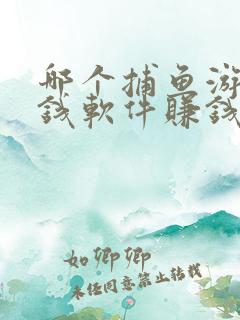 哪个捕鱼游
钱软件赚钱
如卿卿
未经同意禁止转载